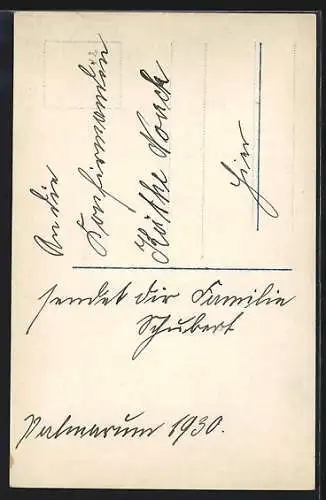 An die
Konfirmandin
Käthe Noack
hier
sendet dir Familie
Schubert
Palmarum 1930.